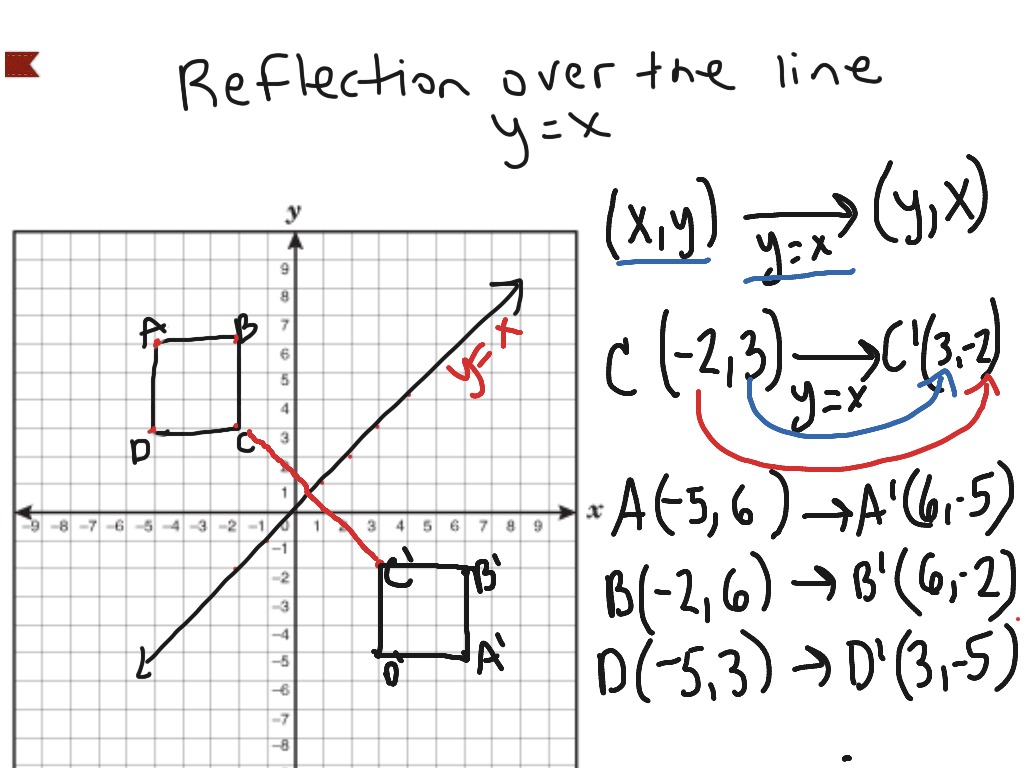 Reflection over the line
y=x
(x,y) → (y,x)
y=x
C (-2,3) → C'(3,-2)
y=x
A(-5,6) → A'(6,-5)
B(-2,6) → B'(6,-2)
D(-5,3) → D'(3,-5)
y
9
8
7
6
5
4
3
2
1
-9 -8 -7 -6 -5 -4 -3 -2 -1 0 1 2 3 4 5 6 7 8 9 x
-1
-2
-3
-4
-5
-6
-7
-8
A B
D C
y=x
C' B'
D' A'